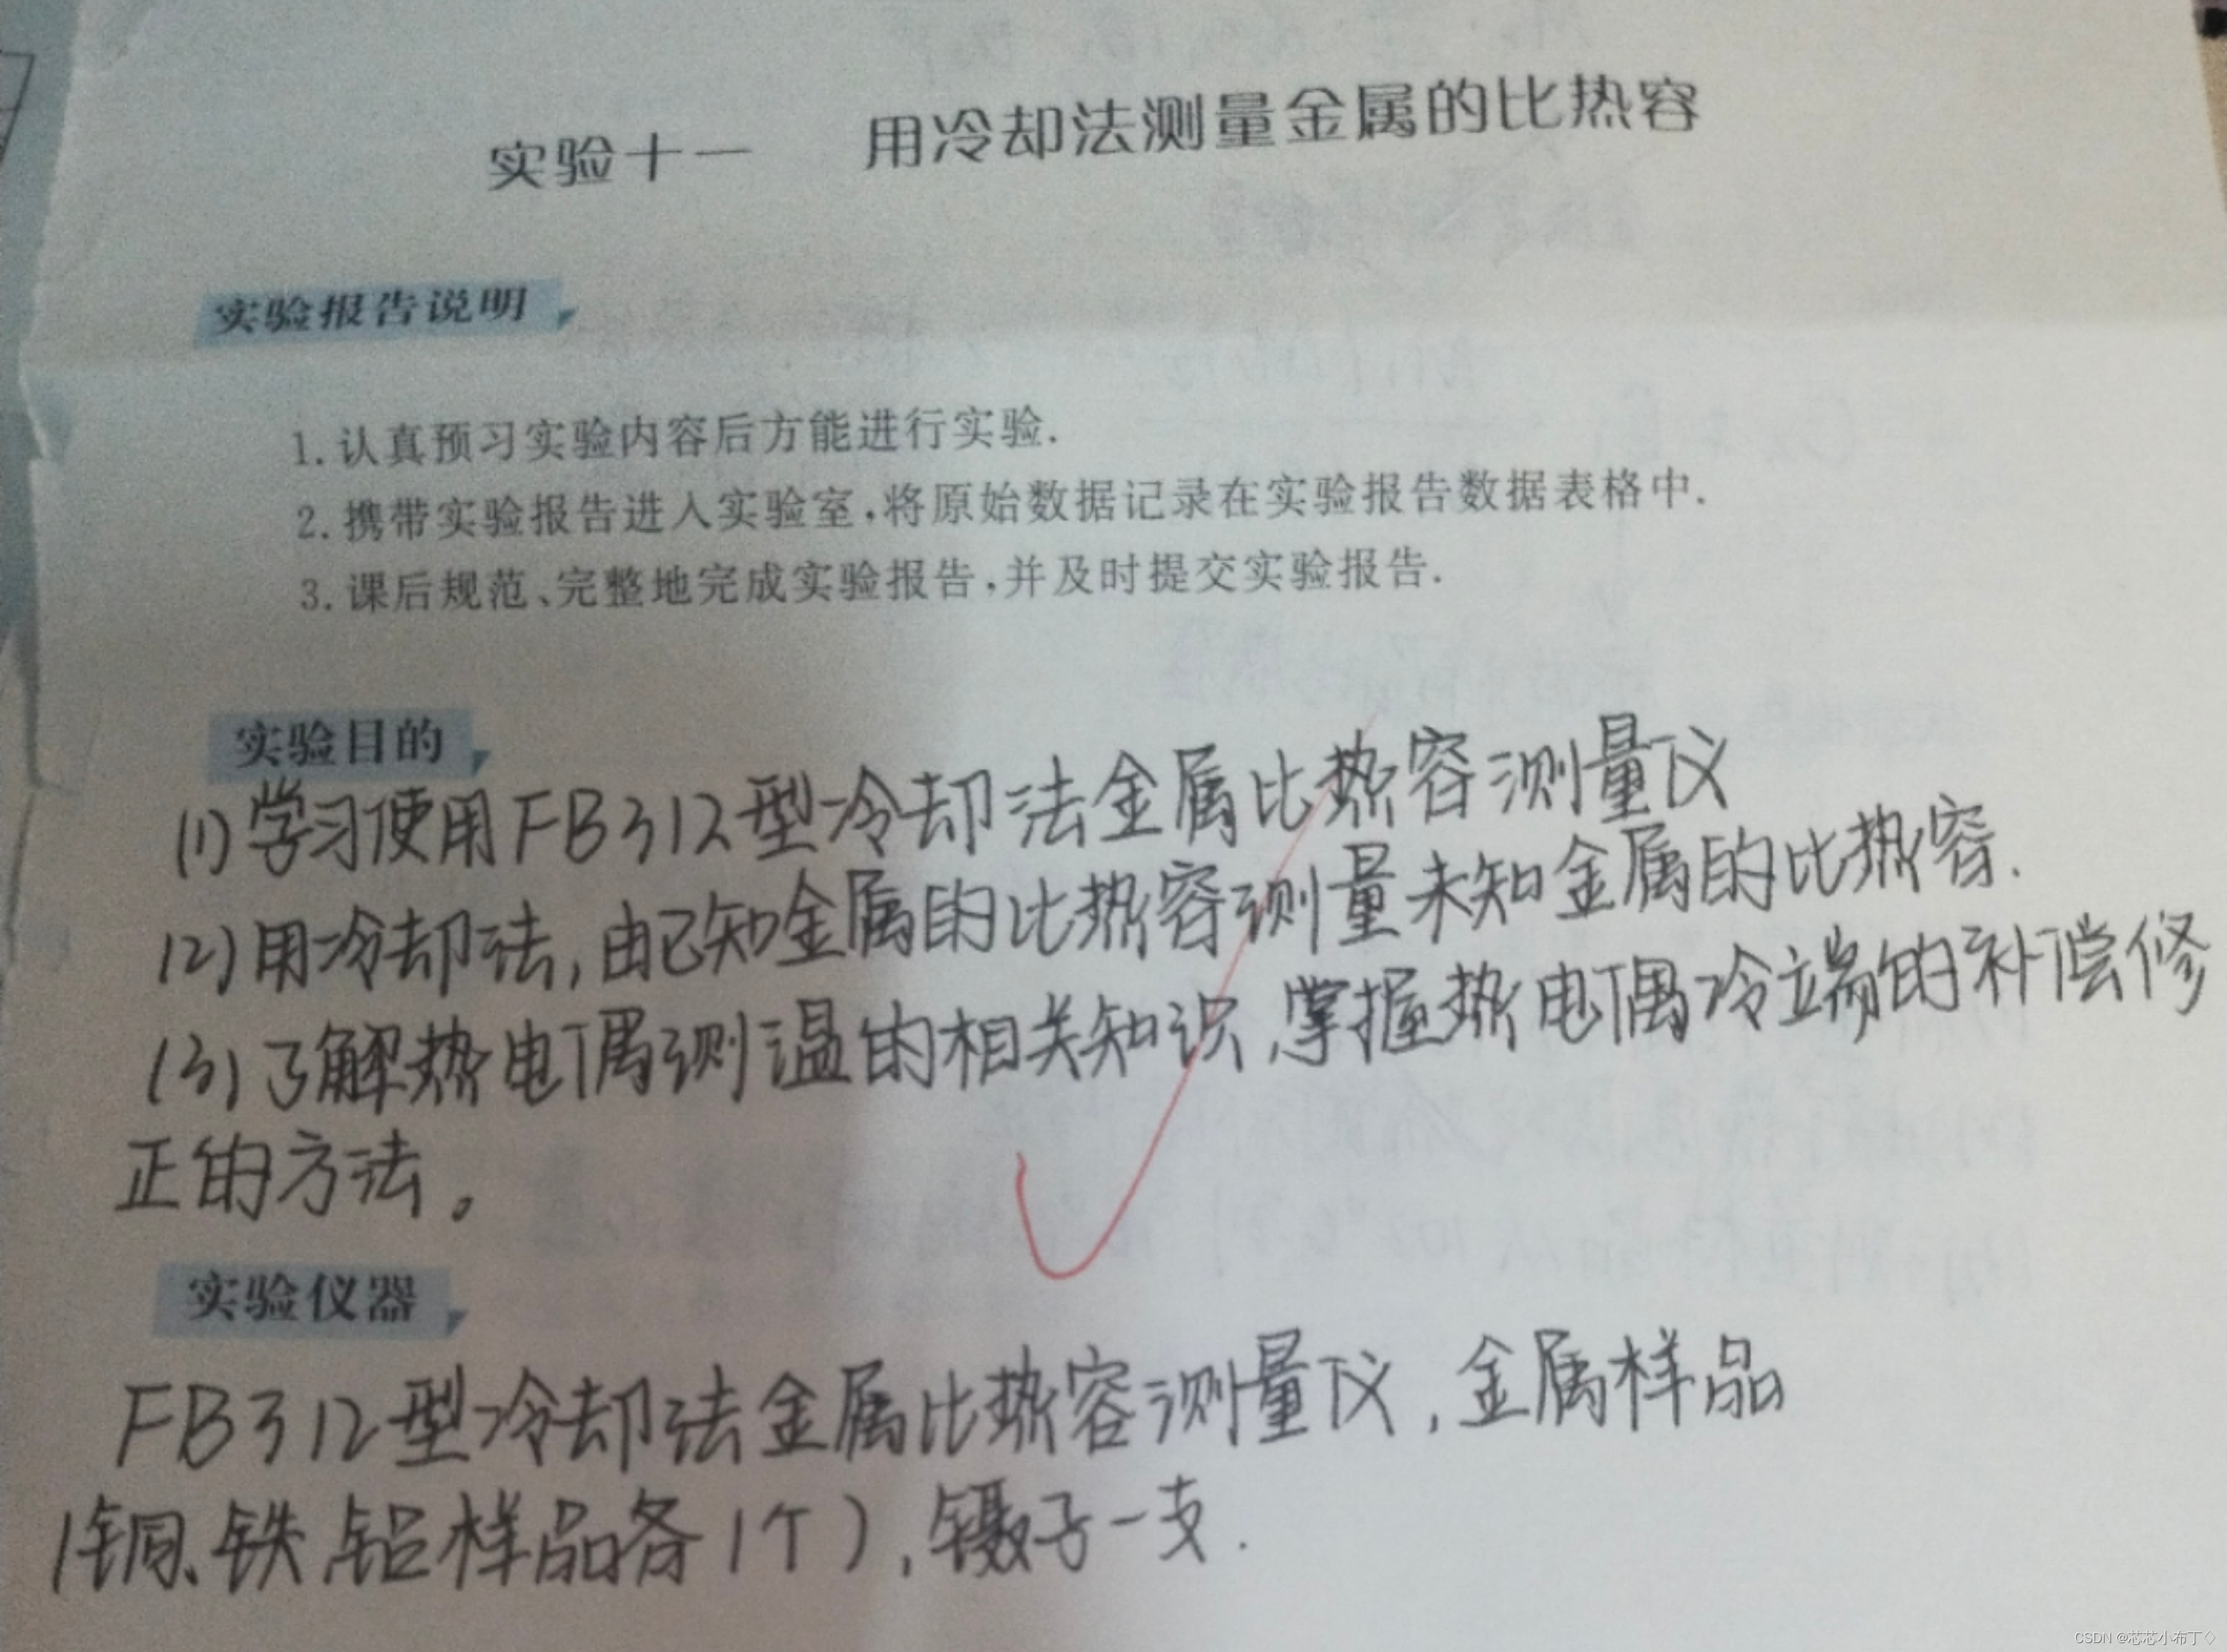 实验十一 用冷却法测量金属的比热容
实验报告说明
1.认真预习实验内容后方能进行实验.
2.携带实验报告进入实验室,将原始数据记录在实验报告数据表格中.
3.课后规范、完整地完成实验报告,并及时提交实验报告.
实验目的
(1)学习使用FB312型冷却法金属比热容测量仪
(2)用冷却法,由已知金属的比热容测量未知金属的比热容.
(3)了解热电偶测温的相关知识,掌握热电偶冷端的补偿修
正的方法。
实验仪器
FB312型冷却法金属比热容测量仪,金属样品
(铜、铁、铝样品各1个),镊子一支.
CSDN @芯芯小布丁♢